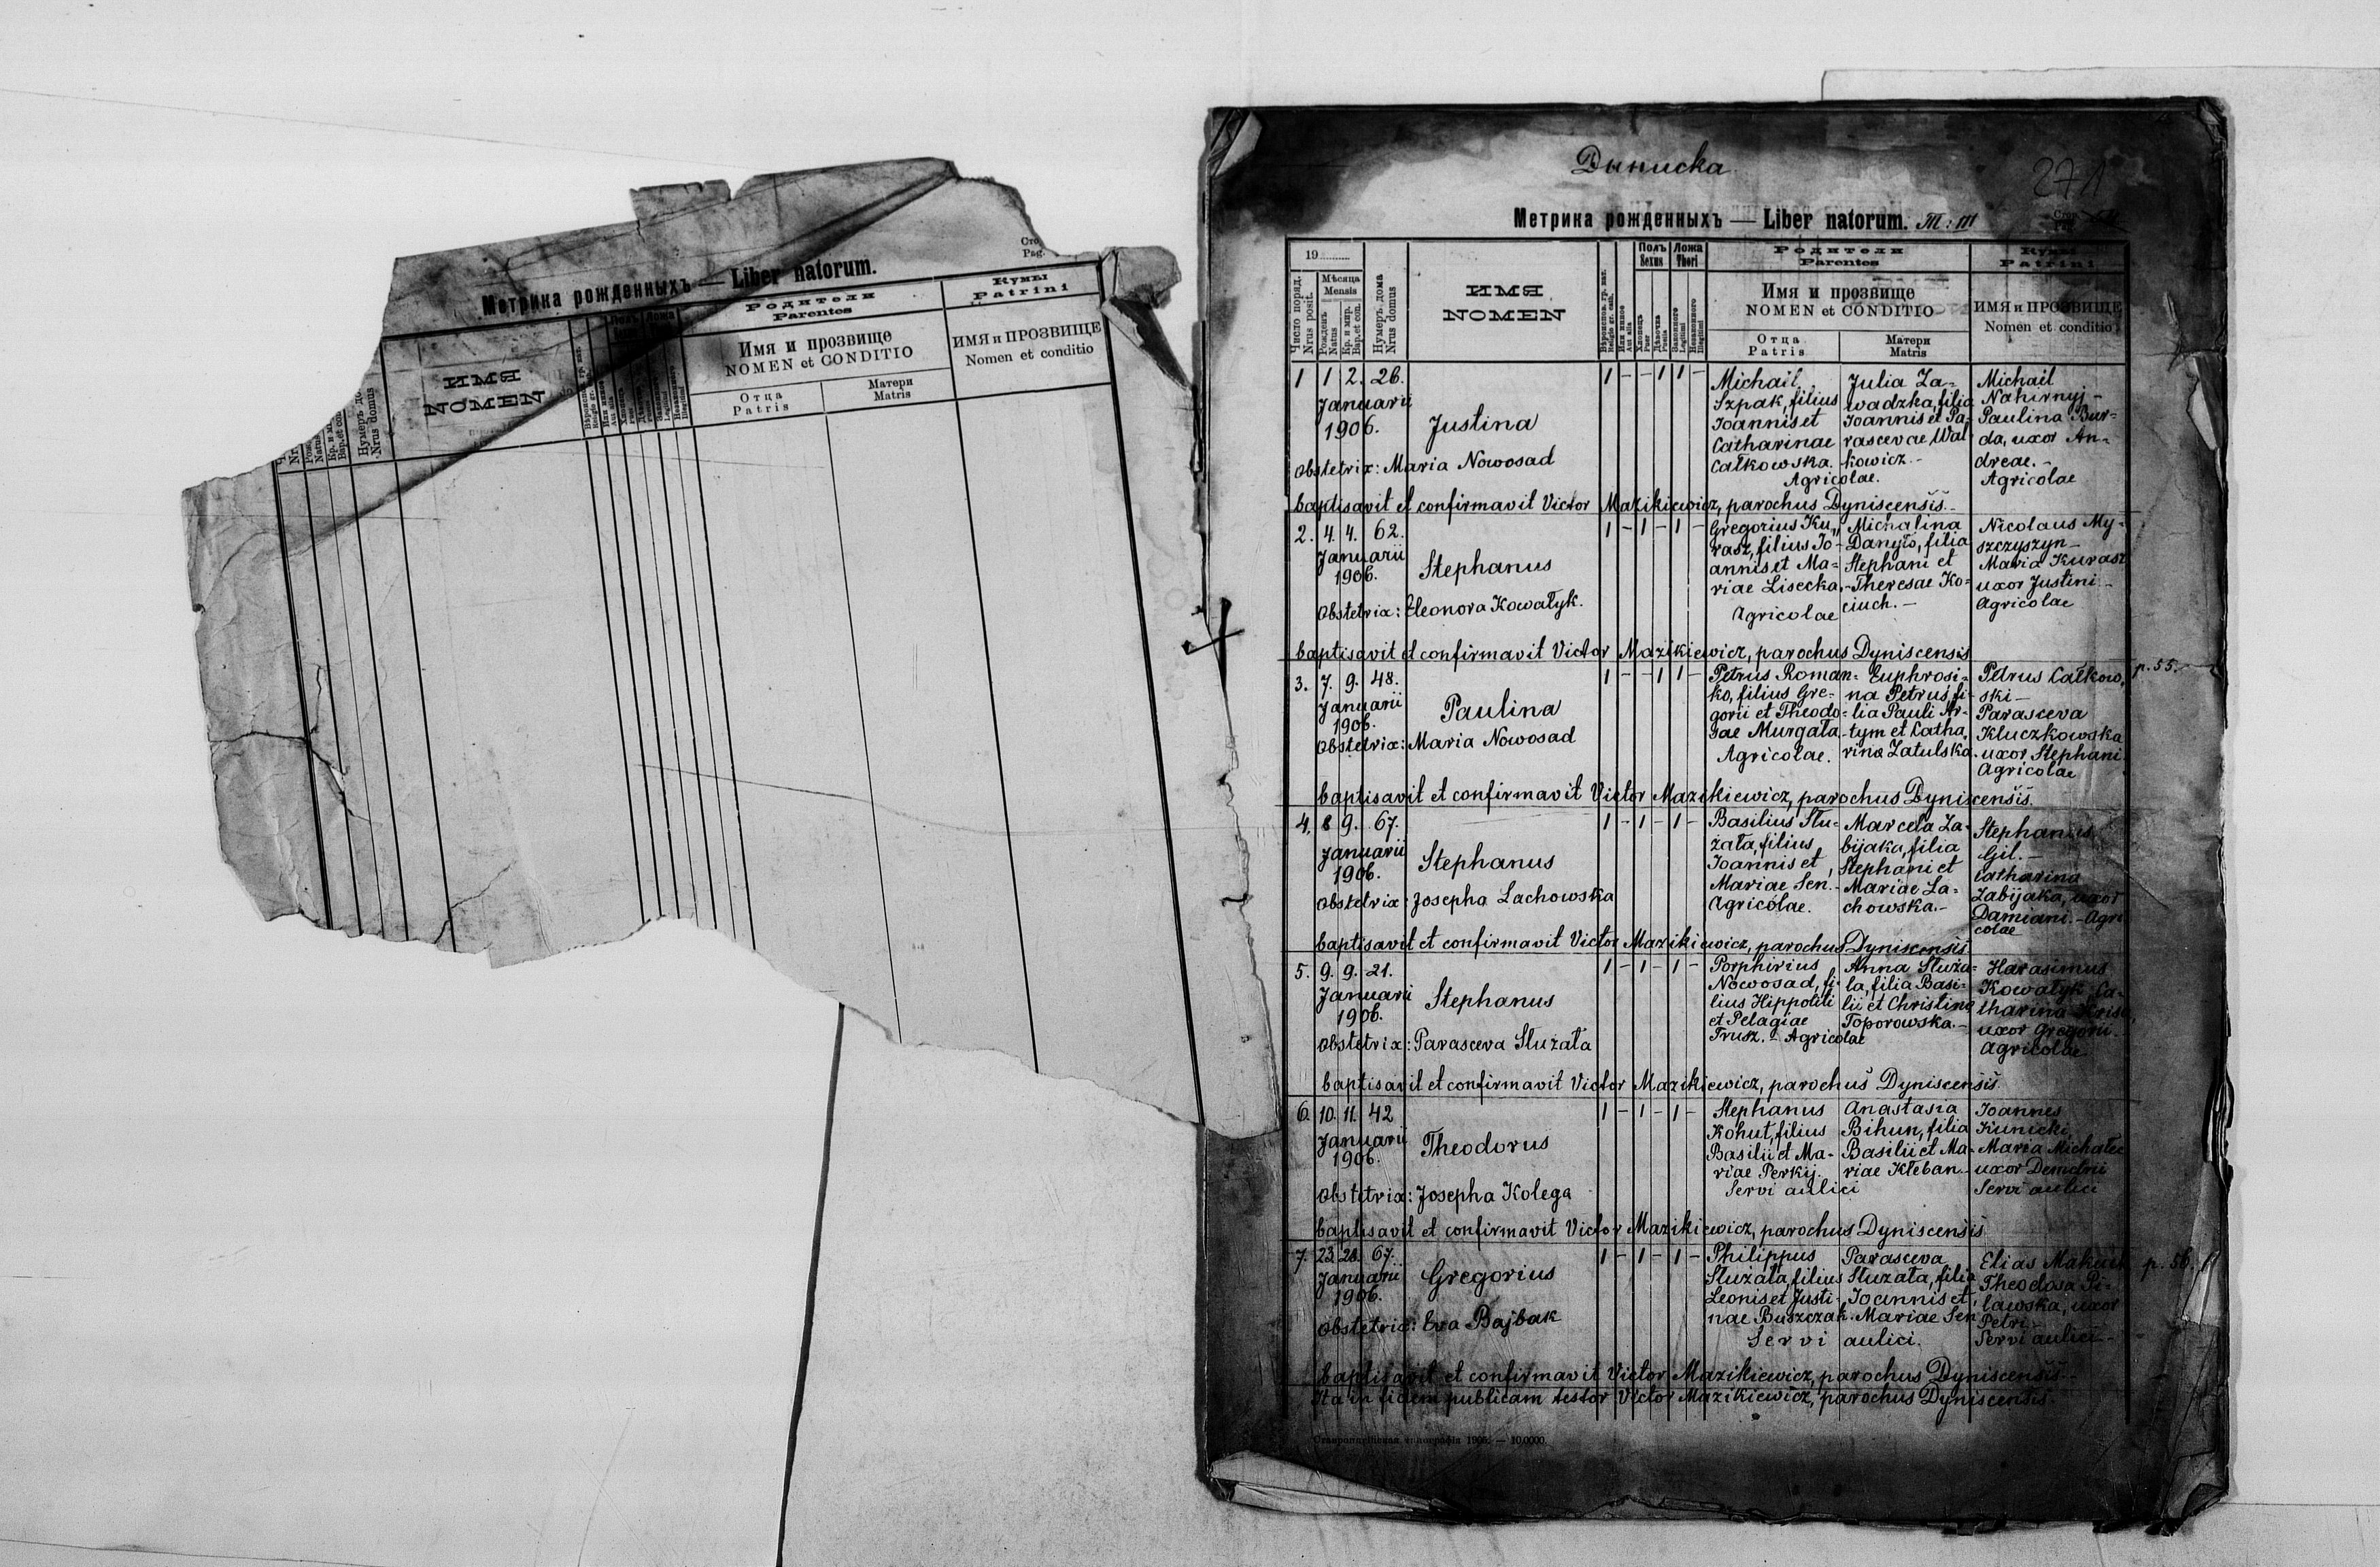 Сто
Pag.
Метрика рожденныхъ — Liber natorum.
Nrus domus
ИМЯ
NOMEN
Родители
Parentes
Кумы
Patrini
Имя и прозвище
NOMEN et CONDITIO
ИМЯ и ПРОЗВИЩЕ
Nomen et conditio
Отца
Patris
Матери
Matris
Дыниска
271
Метрика рожденныхъ — Liber natorum. T: III
19
Число поряд.
Nrus posit.
Мѣсяца
Mensis
Рожденъ
Natus
Кр. и мир.
Bap. et con.
Нумеръ дома
Nrus domus
ИМЯ
NOMEN
Полъ
Sexus
Ложа
Thori
Родители
Parentes
Кумы
Patrini
Имя и прозвище
NOMEN et CONDITIO
ИМЯ и ПРОЗВИЩЕ
Nomen et conditio
Отца
Patris
Матери
Matris
1 1 2. 26. 1 - - 1 1 -
Januarii
1906.
Justina
Michail
Szpak, filius
Joannis et
Catharinae
Całkowska.
Julia Za-
wadzka, filia
Joannis et Pa-
rascevae Wal
kowicz.-
Agricolae.
Michail
Nahirnyj -
Paulina Bur-
da, uxor An-
dreae.-
Agricolae
Obstetrix: Maria Nowosad
baptisavit et confirmavit Victor Mazikiewicz, parochus Dyniscensis.-
2. 4. 4. 62. 1 - 1 - 1 -
Januarii
1906.
Stephanus
Gregorius Ku-
rasz, filius Jo-
annis et Ma-
riae Lisecka.
Agricolae
Michalina
Danyło, filia
Stephani et
Theresae Ko-
ciuch.-
Nicolaus My-
szczyszyn -
Maria Kurasz
uxor Justini.-
Agricolae
Obstetrix: Eleonora Kowałyk.
baptisavit et confirmavit Victor Mazikiewicz, parochus Dyniscensis
3. 7. 9. 48. 1 - - 1 1 -
Januarii
1906.
Paulina
Petrus Roman-
ko, filius Gre-
gorii et Theodo-
sae Murgała
Agricolae.
Euphrosi-
na Petrus, fi-
lia Pauli Ar-
tym et Catha
rina Zatulska.
Petrus Całkow-
ski -
Parasceva
Kluczkowska
uxor Stephani
Agricolae
p. 55.
Obstetrix: Maria Nowosad
baptisavit et confirmavit Victor Mazikiewicz, parochus Dyniscensis.
4. 8 9. 67. 1 - 1 - 1 -
Januarii
1906.
Stephanus
Basilius Słu-
żała, filius
Joannis et
Mariae Sen.-
Agricolae.
Marcela Za-
bijaka, filia
Stephani et
Mariae La-
chowska.-
Stephanus
Gil.-
Catharina
Zabijaka, uxor
Damiani.- Agri
colae
Obstetrix: Josepha Lachowska
baptisavit et confirmavit Victor Mazikiewicz, parochus Dyniscensis
5. 9. 9. 21. 1 - 1 - 1 -
Januarii
1906.
Stephanus
Porphirius
Nowosad, fi-
lius Hippoliti
et Pelagiae
Trusz.- Agricolae
Anna Służa-
ła, filia Basi-
lii et Christina
Toporowska.-
Harasimus
Kowałyk, Ca-
tharina
uxor Gregorii.
Agricolae
Obstetrix: Parasceva Służała
baptisavit et confirmavit Victor Mazikiewicz, parochus Dyniscensis.
6. 10. 11. 42 1 - 1 - 1 -
Januarii
1906.
Theodorus
Stephanus
Kohut, filius
Basilii et Ma-
riae Perkij.
Servi aulici
Anastasia
Bihun, filia
Basilii et Ma-
riae Kłeban.-
Joannes
Kunicki,
Maria Michalec
uxor Demetrii
Servi aulici
Obstetrix: Josepha Kolega
baptisavit et confirmavit Victor Mazikiewicz, parochus Dyniscensis
7. 23. 28. 67. 1 - 1 - 1 -
Januarii
1906.
Gregorius
Philippus
Służała, filius
Leonis et Justi-
nae Buszczak.
Servi aulici.
Parasceva
Służała, filia
Joannis et
Mariae Sen
Elias
Theodosa Pi-
lawska, uxor
Petri.-
Servi aulici.-
p. 56.
Obstetrix: Eva Bajbak
baptisavit et confirmavit Victor Mazikiewicz, parochus Dyniscensis.-
Ita in fidem publicam testor Victor Mazikiewicz, parochus Dyniscensis.